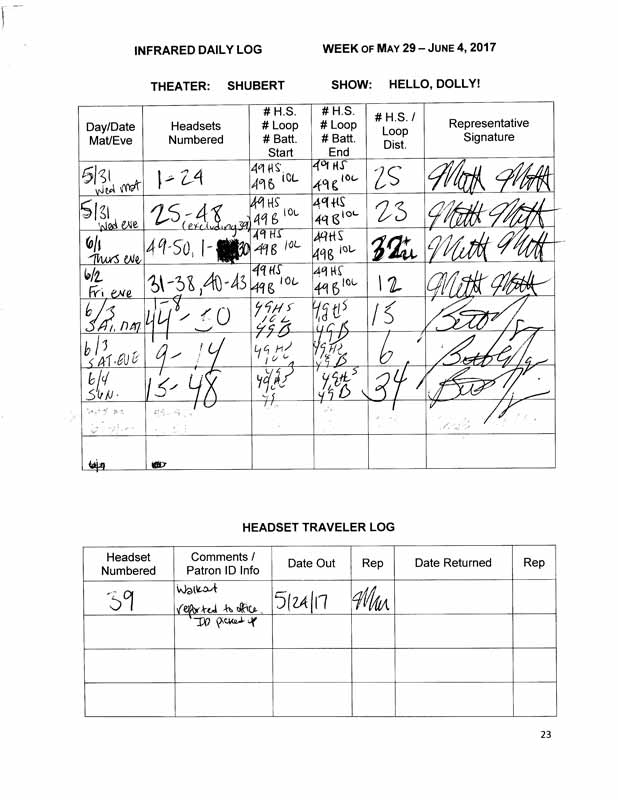 INFRARED DAILY LOG WEEK OF MAY 29 – JUNE 4, 2017
THEATER: SHUBERT SHOW: HELLO, DOLLY!
Day/Date
Mat/Eve
Headsets
Numbered
# H.S.
# Loop
# Batt.
Start
# H.S.
# Loop
# Batt.
End
# H.S. /
Loop
Dist.
Representative
Signature
5/31
Wed mat
1-24
49 HS
49B 10L
49 HS
49B 10L
25
5/31
Wed eve
25-48
(excluding 39)
49 HS
49B 10L
49 HS
49B 10L
23
6/1
Thurs eve
49-50, 1-30
49 HS
49B 10L
49HS
49B 10L
32
6/2
Fri eve
31-38, 40-43
49 HS
49B 10L
49HS
49B 10L
12
6/3
SAT. MAT
1-8
44-50
49HS
10L
49B
49HS
49B
15
6/3
SAT. EVE
9-14
49HS
49HS
49B
6
6/4
SUN.
15-48
49HS
49HS
49B
34
HEADSET TRAVELER LOG
Headset
Numbered
Comments /
Patron ID Info
Date Out
Rep
Date Returned
Rep
39
Walkout
reported to office
ID picked up
5/24/17
23